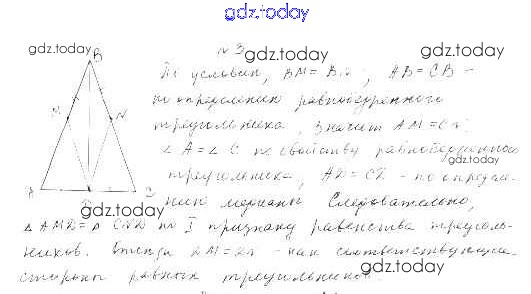 gdz.today
№ 3
gdz.today gdz.today gdz.today
B
По условию, BM = BN; AB = CB –
по определению равнобедренного
M N
треугольника, значит AM = CN;
∠A = ∠C по свойству равнобедренного
gdz.today
треугольника, AD = CD - по опреде-
A D C
лению медианы. Следовательно,
gdz.today
△ AMD = △ CND по I признаку равенства треуголь-
ников. Отсюда DM = DN - как соответствующие
стороны равных треугольников.
gdz.today